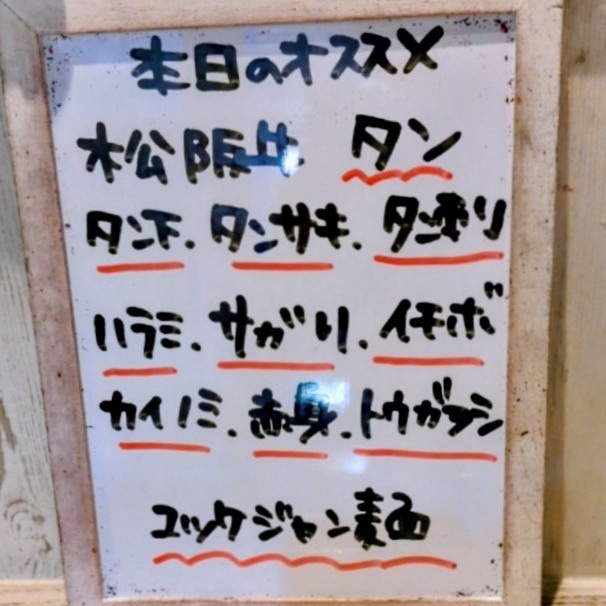 本日のオススメ
松阪牛 タン
タン下.タンサキ.タン塗り
ハラミ.サガリ.イチボ
カイノミ.赤身.トウガラシ
ユッケジャン麺